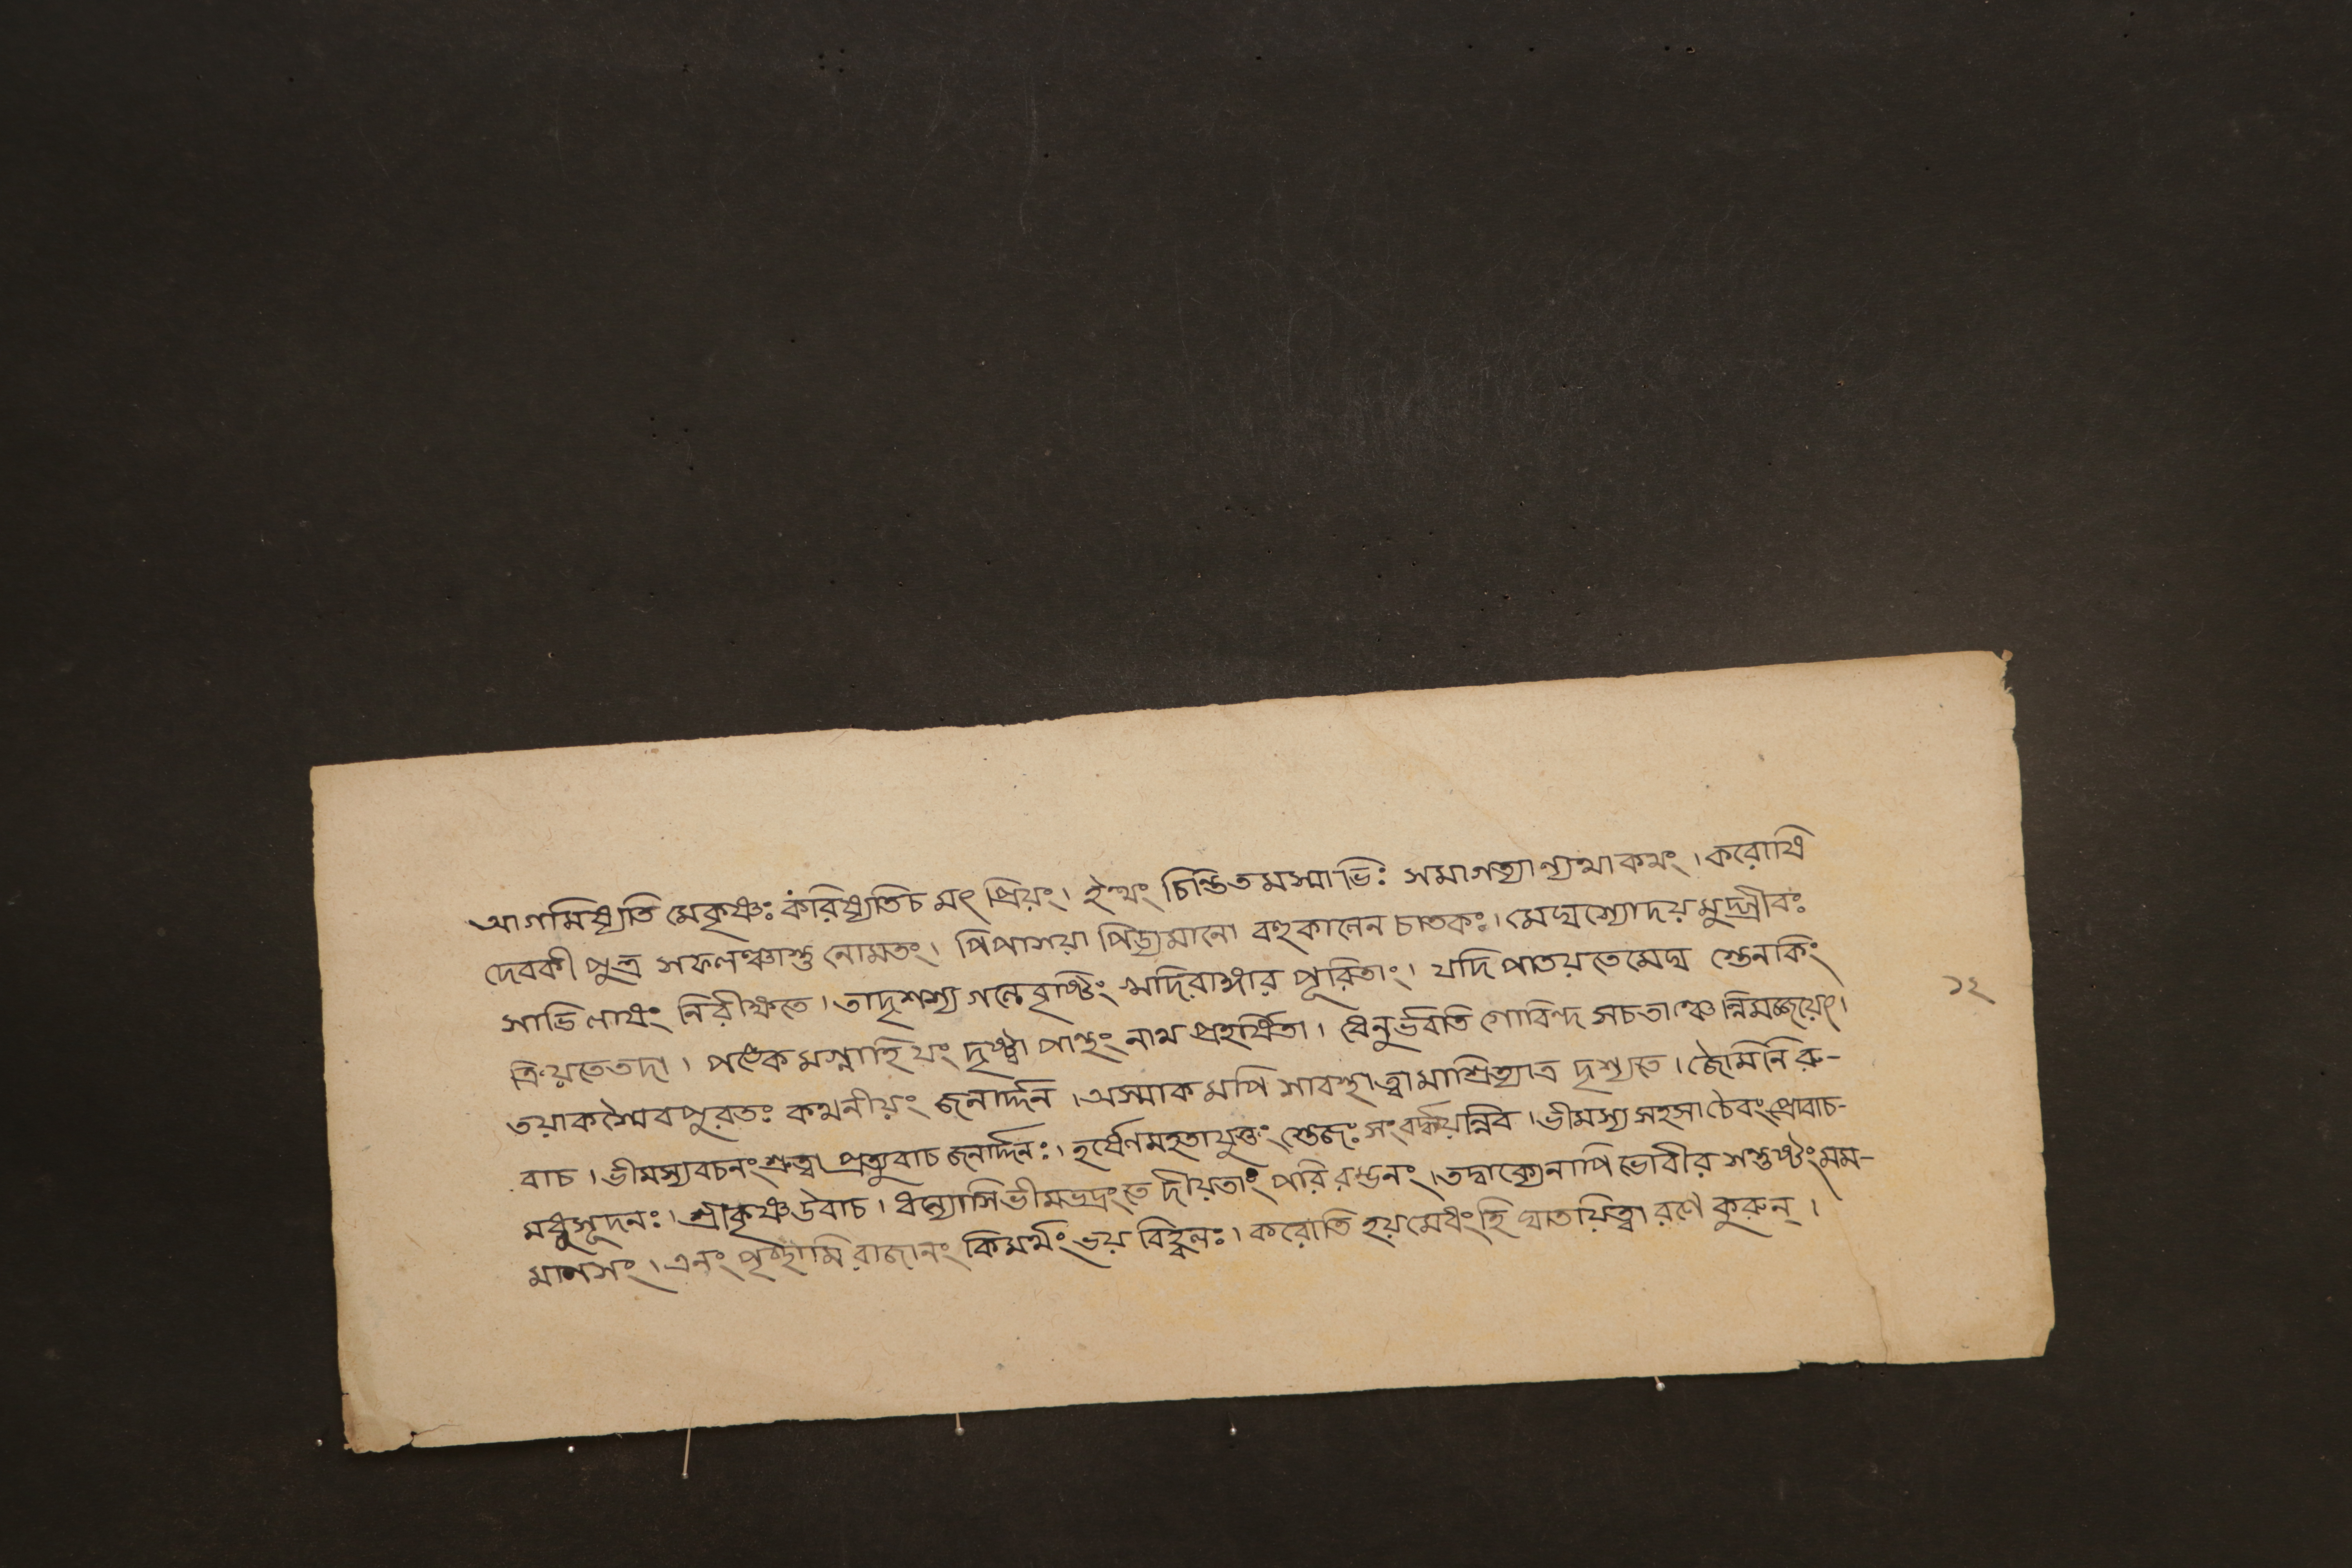 আগমিষ্যতি মেকৃষ্ণঃ করিষ্যতিচ মৎ প্রিয়ং। ইত্থং চিন্তিতমস্মাভিঃ সমাগত্যান্যথাকথং। করোষি
দেবকী পুত্র সফলঞ্চাশু নোমতং। পিপাসয়া পিড্যমানো বহুকালেন চাতকঃ। মেঘস্যোদয়মুদ্গ্রীবঃ
সাভিলাষং নিরীক্ষতে। তাদৃশস্য গলেবৃষ্টিং খদিরাঙ্গার পূরিতাং। যদি পাতয়তে মেঘ স্তেনকিং
ক্রিয়তেতদা। পঙ্কেমগ্নাহিযং দৃষ্ট্বা পান্থং নাথ প্রহর্ষিতা। ধেনুর্ভবতি গোবিন্দ সচতাঞ্চেন্নিমজ্জয়েৎ।
তয়াকস্যৈবপুরতঃ কথনীয়ং জনার্দ্দন। অস্মাকমপি সাবস্থাত্বামাশ্রিত্যাত্র দৃশ্যতে। জৈমিনিরু-
বাচ। ভীমস্যবচনংশ্রুত্বা প্রত্যুবাচ জনার্দ্দনঃ। হর্ষেণমহতাযুক্তং স্তেজঃ সংবর্দ্ধয়ন্নিব। ভীমস্য সহসা চৈবংপ্রোবাচ-
মধুসূদনঃ। শ্রীকৃষ্ণউবাচ। ধন্যোসিভীমভদ্রংতে দীয়তাং পরিরম্ভনং। তদ্বাক্যেনাপি ভোবীর সন্তুষ্টংমম-
মানসং। এনং পৃচ্ছামি রাজানং কিমর্থং ভয় বিহ্বলঃ। করোতি হয়মেধংহি ঘাতয়িত্বা রণে কুরুন্।
১২